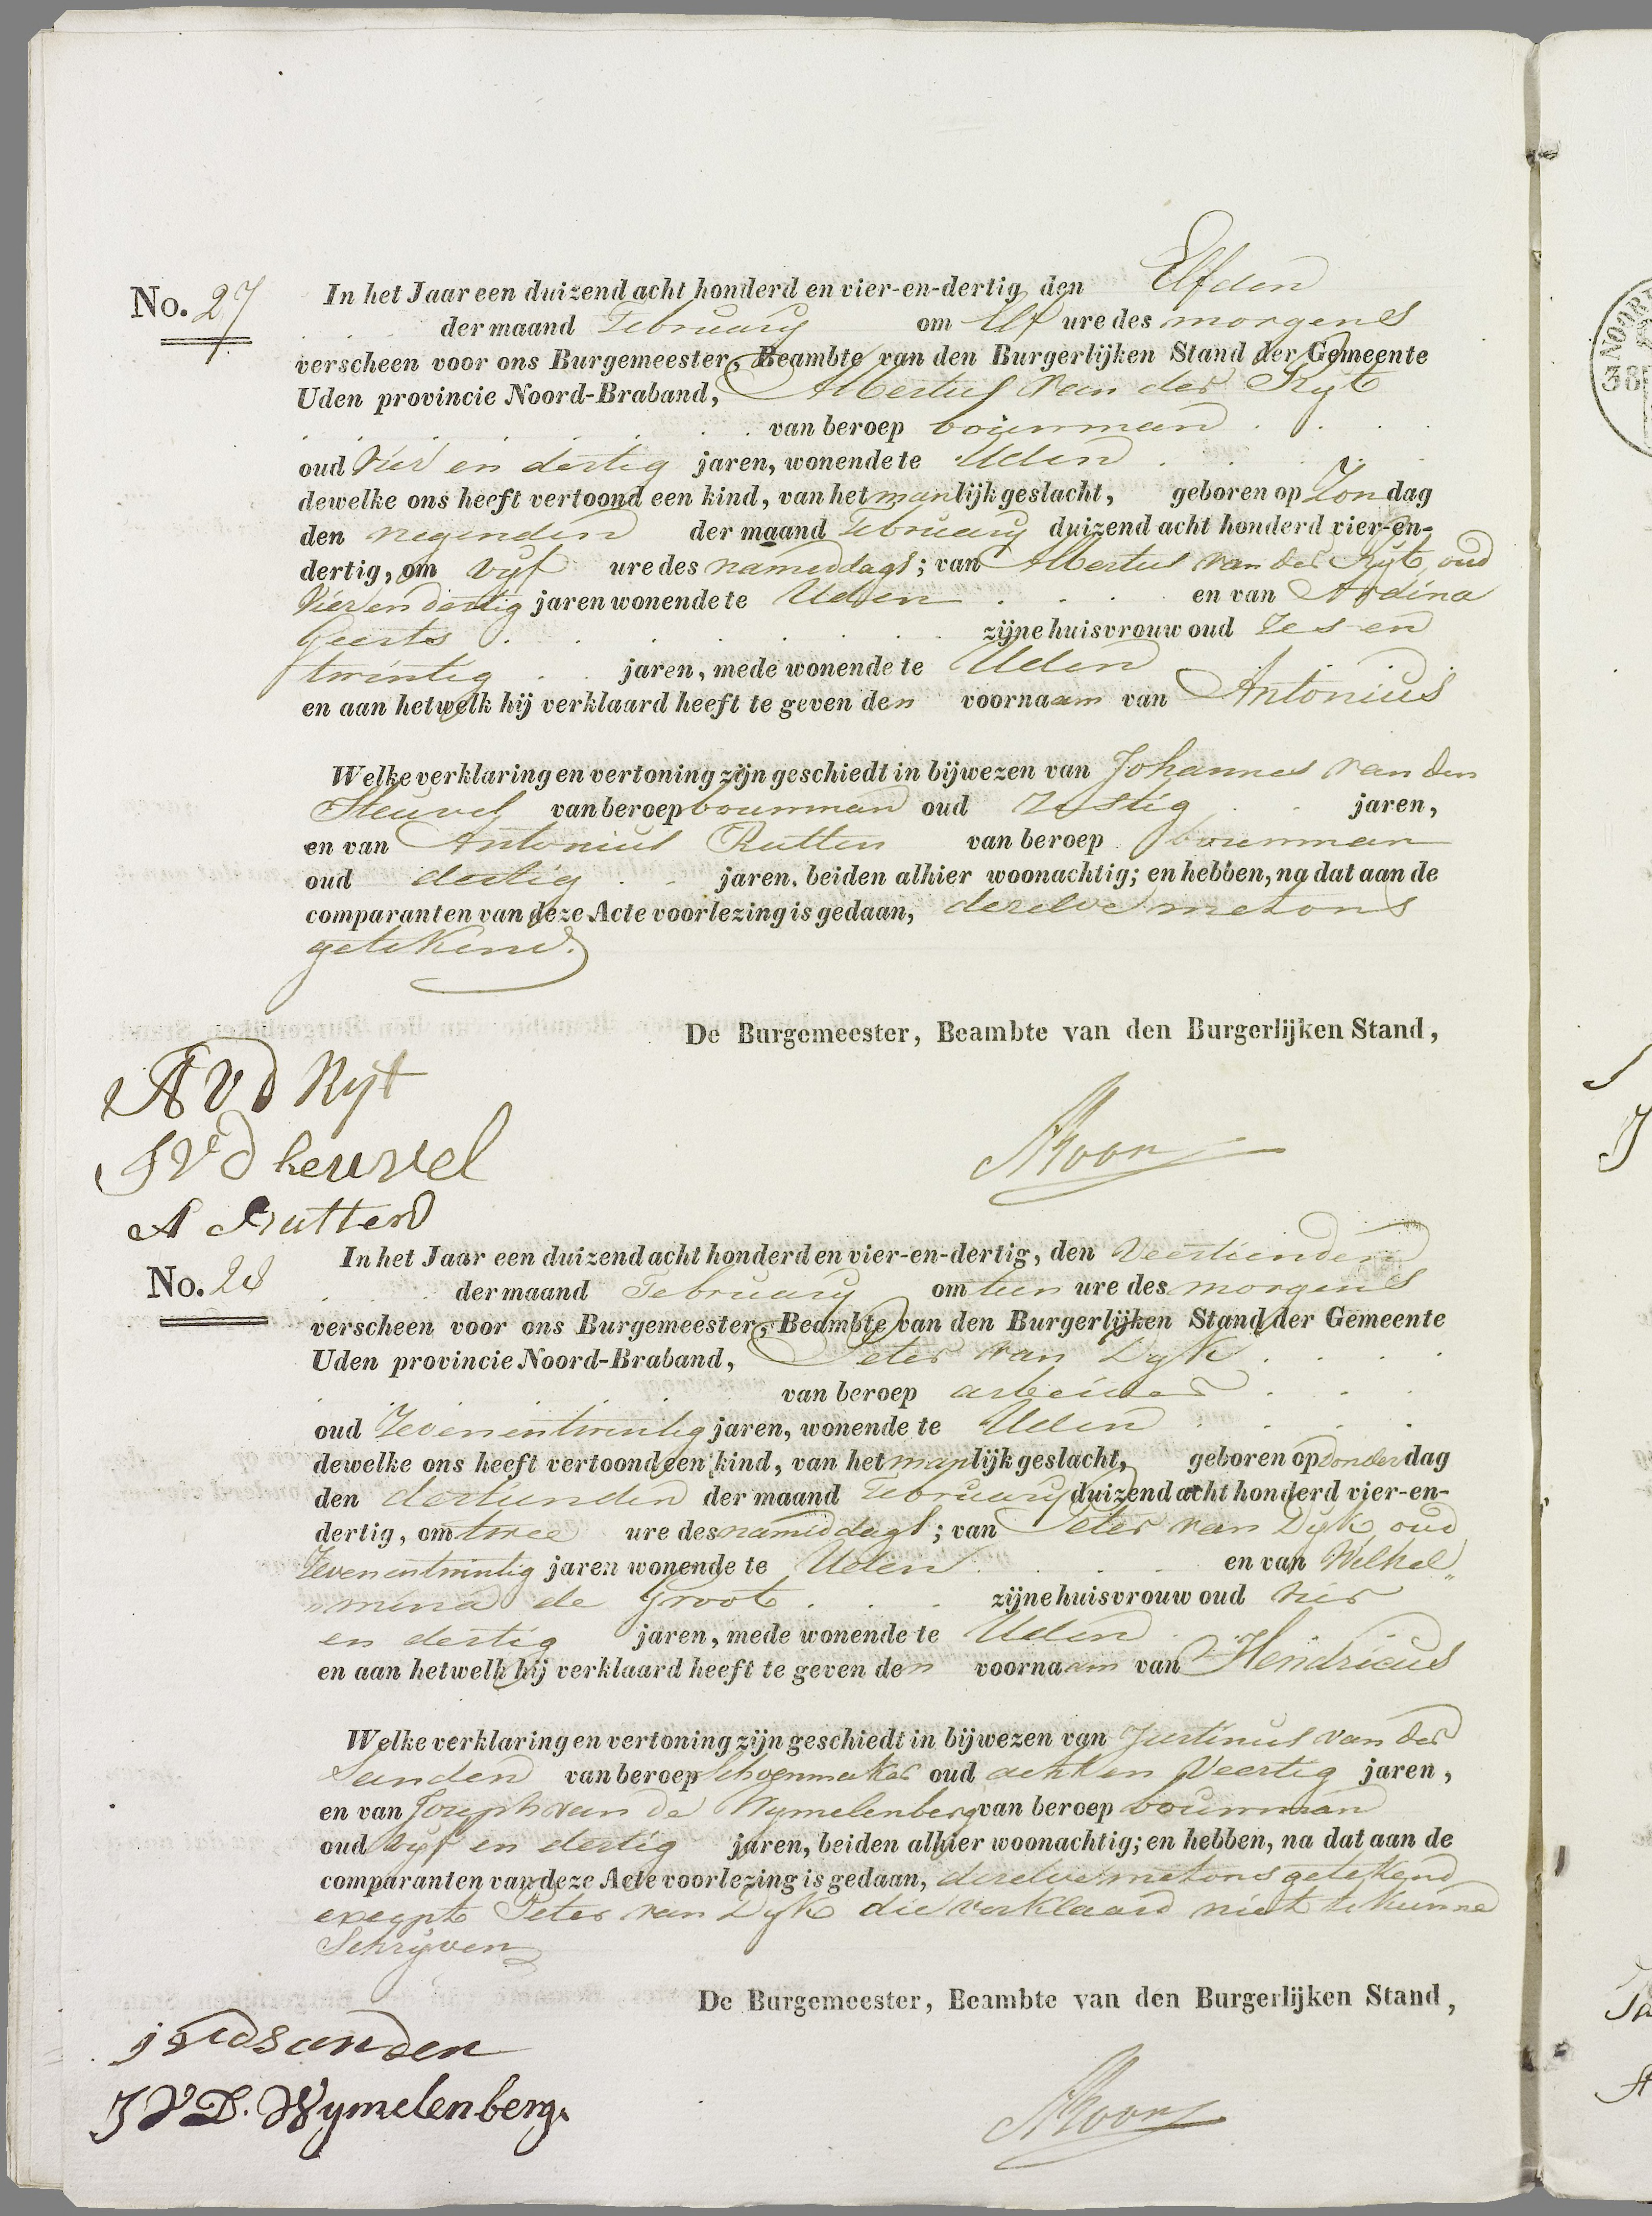 No. 27
In het Jaar een duizend acht honderd en vier-en-dertig, den Elfden
der maand February om Elf ure des morgens
verscheen voor ons Burgemeester, Beambte van den Burgerlijken Stand der Gemeente
Uden provincie Noord-Braband, Albertus van der Ryt
van beroep bouwman
oud Vier en dertig jaren, wonende te Uden
dewelke ons heeft vertoond een kind, van het manlijk geslacht, geboren op Zondag
den negenden der maand February duizend acht honderd vier-en-
dertig, om vyf ure des namiddags; van Albertus van der Ryt, oud
Vier en dertig jaren wonende te Uden en van Ardina
Geerts zijne huisvrouw oud Zes en
twintig jaren, mede wonende te Uden
en aan hetwelk hij verklaard heeft te geven den voornaam van Antonius
Welke verklaring en vertoning zijn geschiedt in bijwezen van Johannes van den
Heuvel van beroep bouwman oud Zestig jaren,
en van Antonius Rutten van beroep bouwman
oud dertig jaren, beiden alhier woonachtig; en hebben, na dat aan de
comparanten van deze Acte voorlezing is gedaan, dezelve met ons
getekend.
De Burgemeester, Beambte van den Burgerlijken Stand,
A V D Ryt
J V D heuvel
A Rutten
No. 28
In het Jaar een duizend acht honderd en vier-en-dertig, den Veertienden
der maand February om tien ure des morgens
verscheen voor ons Burgemeester, Beambte van den Burgerlijken Stand der Gemeente
Uden provincie Noord-Braband, Peter van Dyk
van beroep arbeider
oud Zevenentwintig jaren, wonende te Uden
dewelke ons heeft vertoond een kind, van het manlijk geslacht, geboren op donderdag
den dertienden der maand February duizend acht honderd vier-en-
dertig, om twee ure des namiddags; van Peter van Dyk, oud
Zevenentwintig jaren wonende te Uden en van Wilhel„
„mina de Groot zijne huisvrouw oud vier
en dertig jaren, mede wonende te Uden
en aan hetwelk hij verklaard heeft te geven den voornaam van Hendricus
Welke verklaring en vertoning zijn geschiedt in bijwezen van Justinus van der
Sanden van beroep schoenmaker oud acht en Veertig jaren,
en van Joseph van de Wymelenberg van beroep bouwman
oud vyf en dertig jaren, beiden alhier woonachtig; en hebben, na dat aan de
comparanten van deze Acte voorlezing is gedaan, dezelve met ons getekend
exept Peter van Dyk die verklaard niet te kunne
Schryven
De Burgemeester, Beambte van den Burgerlijken Stand,
j vd sanden
J V D. Wymelenberg.